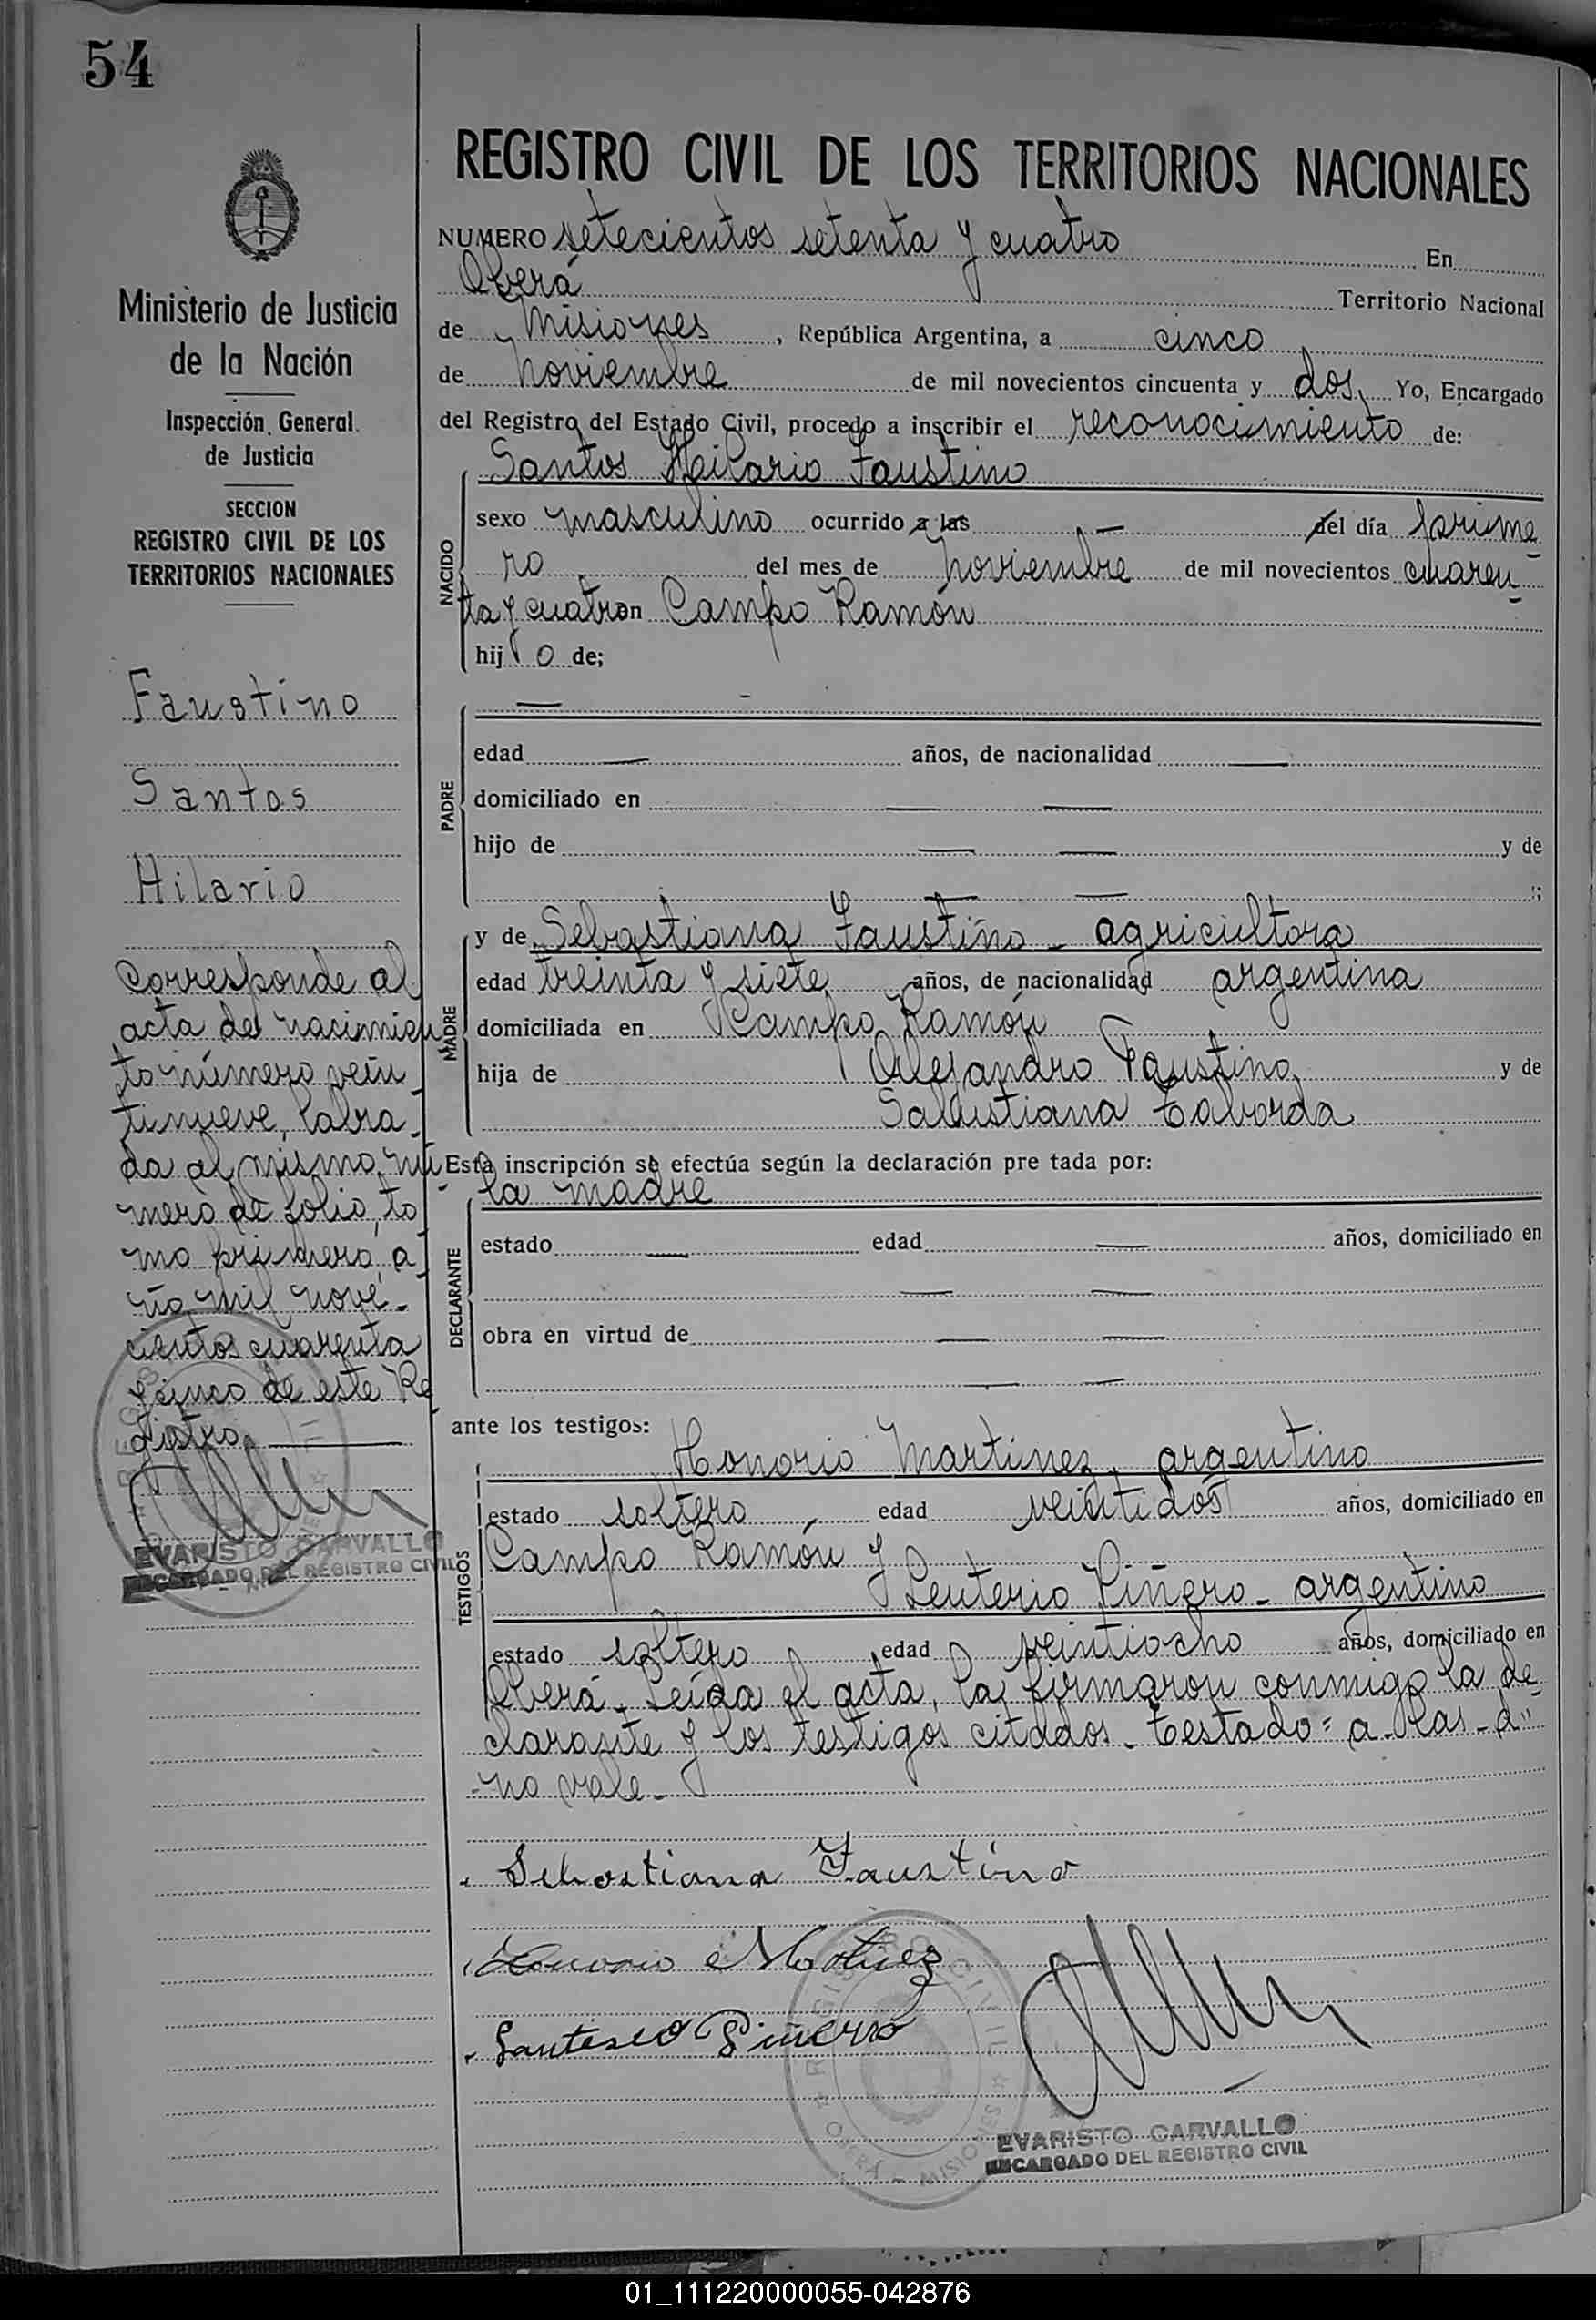 54
Ministerio de Justicia
de la Nación
Inspección General
de Justicia
SECCION
REGISTRO CIVIL DE LOS
TERRITORIOS NACIONALES
Faustino
Santos
Hilario
Corresponde al
acta de nacimien
to número vein
tinueve, labra-
da al mismo nú
mero de folio, to
mo primero, a-
ño mil nove-
cientos cuarenta
y cinco de este Re
gistro.
EVARISTO CARVALLO
ENCARGADO DEL REGISTRO CIVIL
REGISTRO CIVIL DE LOS TERRITORIOS NACIONALES
NUMERO setecientos setenta y cuatro En
Oberá Territorio Nacional
de Misiones, República Argentina, a cinco
de Noviembre de mil novecientos cincuenta y dos, Yo, Encargado
del Registro del Estado Civil, procedo a inscribir el reconocimiento de:
Santos Hilario Faustino
NACIDO
sexo masculino ocurrido a las — del día prime
ro del mes de Noviembre de mil novecientos cuaren
ta y cuatro en Campo Ramón
hijo de;
PADRE
—
edad — años, de nacionalidad —
domiciliado en — —
hijo de — — y de
— — ;
MADRE
y de Sebastiana Faustino - agricultora
edad treinta y siete años, de nacionalidad argentina
domiciliada en Campo Ramón
hija de Alejandro Faustino, y de
Salustiana Taborda
Esta inscripción se efectúa según la declaración pre tada por:
la madre
DECLARANTE
estado — edad — años, domiciliado en
— —
obra en virtud de — —
— —
ante los testigos:
TESTIGOS
Honorio Martinez, argentino
estado soltero edad veintidos años, domiciliado en
Campo Ramón y
Leuterio Piñero - argentino
estado soltero edad veintiocho años, domiciliado en
Oberá. Leída el acta, la firmaron conmigo la de
clarante y los testigos citados. Testado = a - las - d"
- no vale -
Sebastiana Faustino
Honorio Martinez
Piñero
REGISTRO CIVIL
OBERÁ - MISIONES
EVARISTO CARVALLO
ENCARGADO DEL REGISTRO CIVIL
01_111220000055-042876